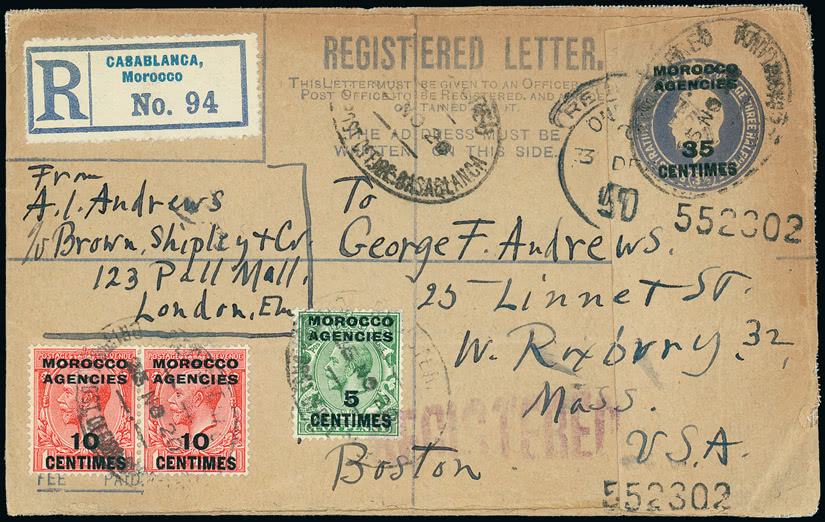 REGISTERED LETTER.
THIS LETTER MUST BE GIVEN TO AN OFFICER
POST OFFICE TO BE REGISTERED, AND
OBTAINED IT.
THE ADDRESS MUST BE
WRITTEN ON THIS SIDE.
R
CASABLANCA,
Morocco
No. 94
POST OFFICE CASABLANCA
MOROCCO
AGENCIES
35
CENTIMES
552302
From
A.I. Andrews
c/o Brown, Shipley & Co.
123 Pall Mall.
London, En
To
George F. Andrews.
25 Linnet St.
W. Roxbury 32,
Mass.
Boston
U.S.A.
POSTAGE REVENUE
MOROCCO
AGENCIES
10
CENTIMES
POSTAGE REVENUE
MOROCCO
AGENCIES
10
CENTIMES
MOROCCO
AGENCIES
5
CENTIMES
FEE PAID.
REGISTERED
552302